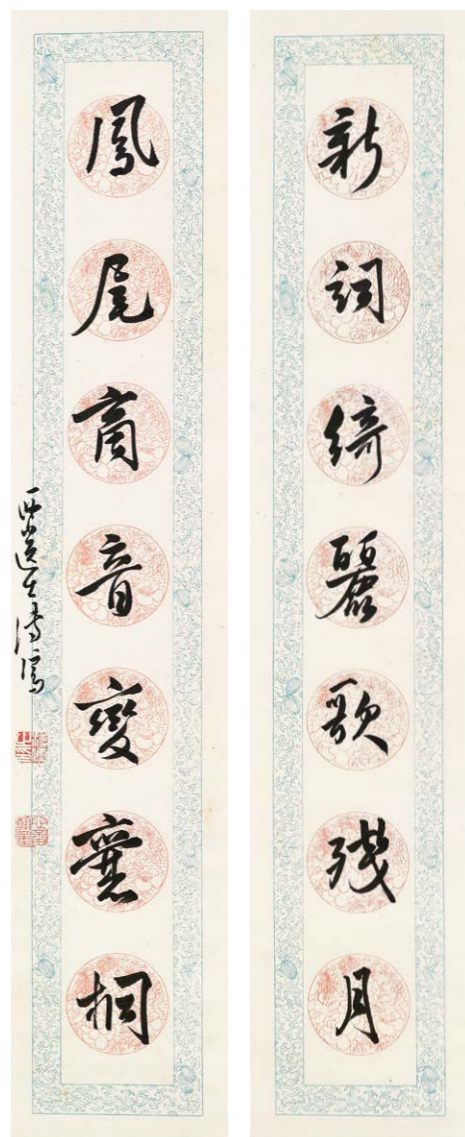 新詞綺麗歌殘月
鳳尾商音變爨桐
西山逸士溥儒